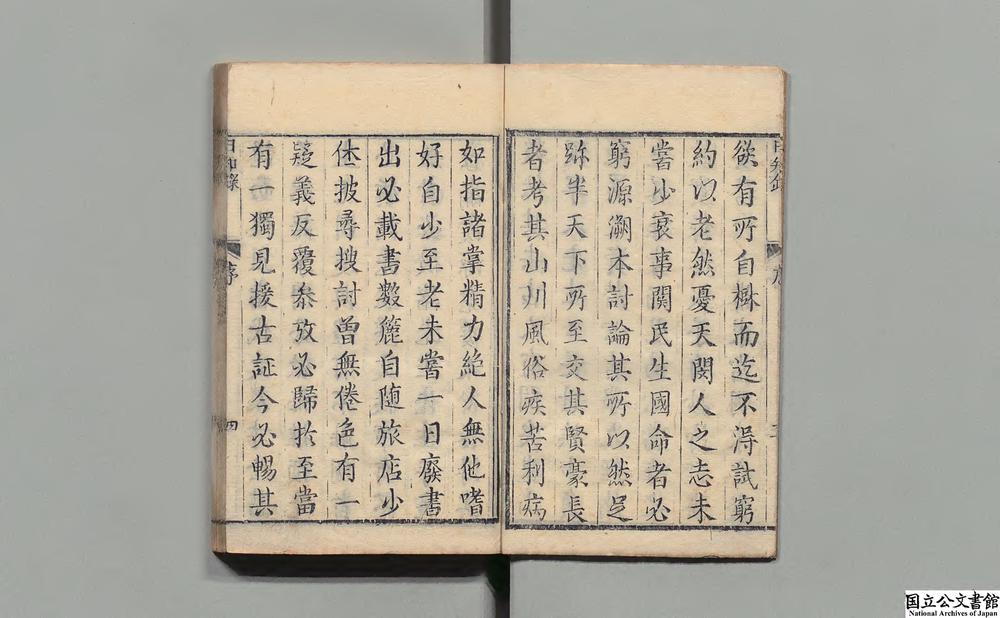 欲有所自樹而迄不得試窮
約以老然憂天閔人之志未
嘗少衰事關民生國命者必
窮源溯本討論其所以然足
跡半天下所至交其賢豪長
者考其山川風俗疾苦利病
如指諸掌精力絶人無他嗜
好自少至老未嘗一日廢書
出必載書數簏自隨旅店少
休披尋搜討曾無倦色有一
疑義反覆叅攷必歸扵至當
有一獨見援古証今必暢其
日知錄
序
四
国立公文書館
National Archives of Japan